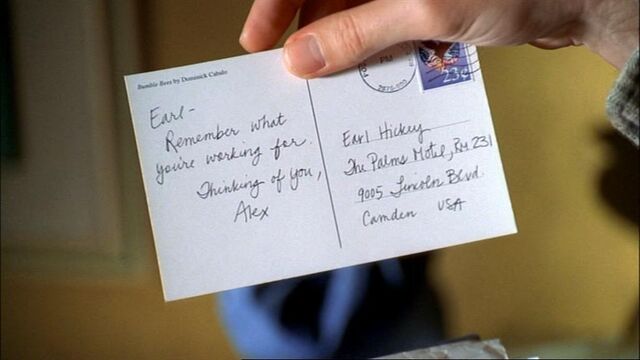 Bumble Bees by Dominick Cabalo
Earl-
Remember what
you're working for.
Thinking of you,
Alex
PM
23¢
Earl Hickey
The Palms Motel, Rm 231
9005 Lincoln Blvd.
Camden USA